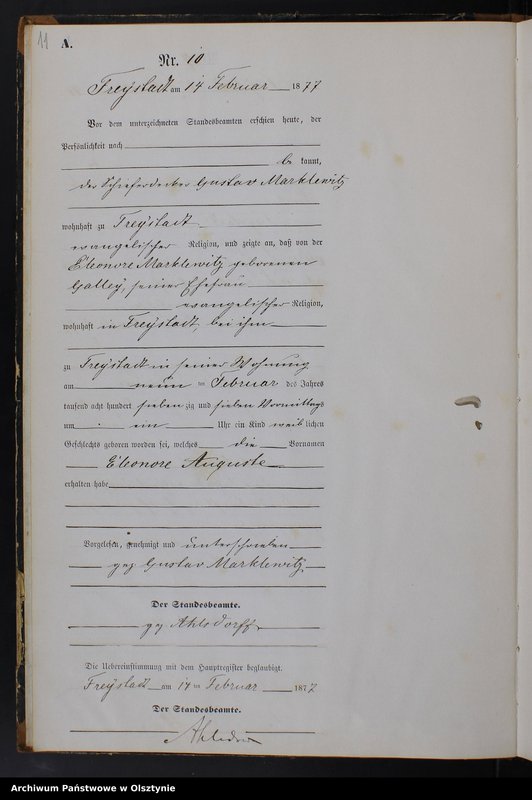 11
A.
Nr. 10
Freystadt am 14 Februar 1877
Vor dem unterzeichneten Standesbeamten erschien heute, der
Persönlichkeit nach
be kannt,
der Schieferdecker Gustav Marklewitz
wohnhaft zu Freystadt
evangelischer Religion, und zeigte an, daß von der
Eleonore Marklewitz geborenen
Galley, seiner Ehefrau
evangelischer Religion,
wohnhaft in Freystadt, bei ihm
zu Freystadt in seiner Wohnung
am neun ten Februar des Jahres
tausend acht hundert sieben zig und sieben Vormittags
um ein Uhr ein Kind weib lichen
Geschlechts geboren worden sei, welches die Vornamen
Eleonore Auguste
erhalten habe
Vorgelesen, genehmigt und unterschrieben
gez Gustav Marklewitz
Der Standesbeamte.
gez Ahlsdorff
Die Uebereinstimmung mit dem Hauptregister beglaubigt.
Freystadt am 14 ten Februar 1877
Der Standesbeamte.
Archiwum Państwowe w Olsztynie